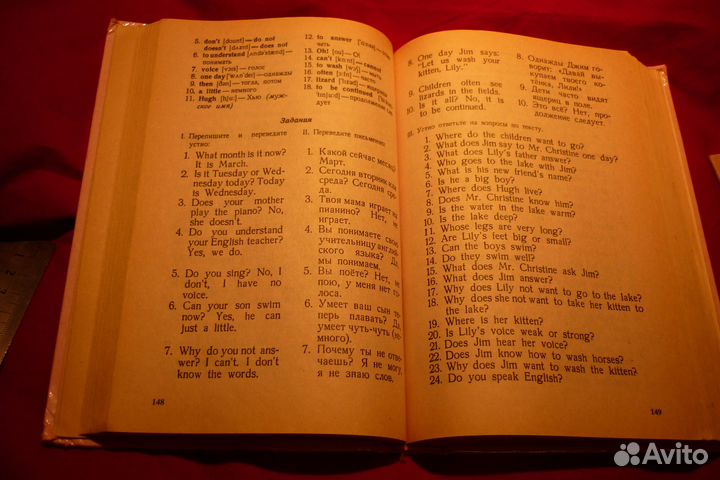 5. don't [dount] — do not
doesn't [dʌznt] — does not
6. to understand [ʌndə'stænd] —
понимать
7. voice [vɔis] — голос
8. one day ['wʌn'dei] — однажды
9. then [ðen] — тогда, потом
10. a little — немного
11. Hugh [hju:] — Хью (муж-
ское имя)
12. to answer ['ɑ:nsə] —
чать
13. Oh! [ou] — О!
14. can't [kɑ:nt] —
15. to wash [wɔʃ] —
16. often [ɔ:fn] — часто
17. lizard [lizəd] —
18. to be continued
продолжение
следует
Задания
I. Перепишите и переведите
устно:
1. What month is it now?
It is March.
2. Is it Tuesday or Wed-
nesday today? Today
is Wednesday.
3. Does your mother
play the piano? No,
she doesn't.
4. Do you understand
your English teacher?
Yes, we do.
5. Do you sing? No, I
don't, I have no
voice.
6. Can your son swim
now? Yes, he can
just a little.
7. Why do you not ans-
wer? I can't. I don't
know the words.
II. Переведите письменно:
1. Какой сейчас месяц?
Март.
2. Сегодня вторник или
среда? Сегодня сре-
да.
3. Твоя мама играет на
пианино? Нет, не
играет.
4. Вы понимаете свою
учительницу англий-
ского языка? Да,
мы понимаем.
5. Вы поёте? Нет, не
пою, у меня нет го-
лоса.
6. Умеет ваш сын те-
перь плавать? Да,
умеет чуть-чуть (не-
много).
7. Почему ты не отве-
чаешь? Я не могу,
я не знаю слов.
148
8. One day Jim says:
"Let us wash your
kitten, Lily."
9. Children often see
lizards in the fields.
10. Is it all? No, it is
to be continued.
8. Однажды Джим го-
ворит: «Давай вы-
купаем твоего
котёнка, Лили!»
9. Дети часто видят
ящериц в поле.
10. Это всё? Нет, про-
должение следует.
III. Устно ответьте на вопросы по тексту.
1. Where do the children want to go?
2. What does Jim say to Mr. Christine one day?
3. What does Lily's father answer?
4. Who goes to the lake with Jim?
5. What is his new friend's name?
6. Is he a big boy?
7. Where does Hugh live?
8. Does Mr. Christine know him?
9. Is the water in the lake warm?
10. Is the lake deep?
11. Whose legs are very long?
12. Are Lily's feet big or small?
13. Can the boys swim?
14. Do they swim well?
15. What does Mr. Christine ask Jim?
16. What does Jim answer?
17. Why does Lily not want to go to the lake?
18. Why does she not want to take her kitten to
the lake?
19. Where is her kitten?
20. Is Lily's voice weak or strong?
21. Does Jim hear her voice?
22. Does Jim know how to wash horses?
23. Why does Jim want to wash the kitten?
24. Do you speak English?
149
Avito